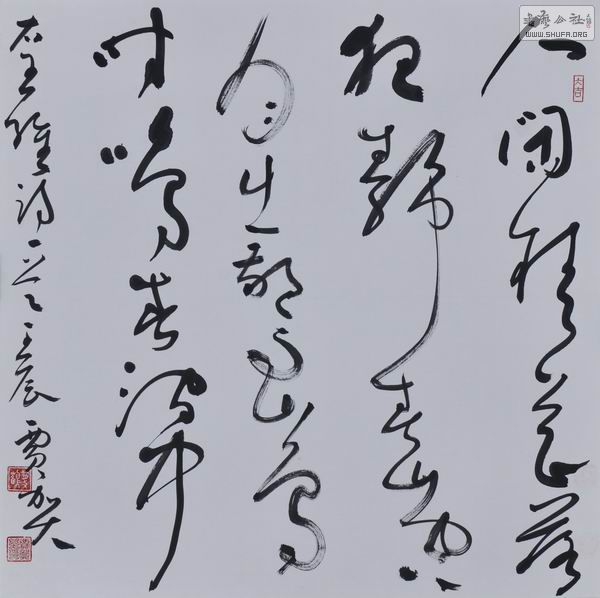 人闲桂花落
夜静春山空
月出惊山鸟
时鸣春涧中
右王维诗一首 壬辰 贾
大吉
书艺公社
WWW.SHUFA.ORG